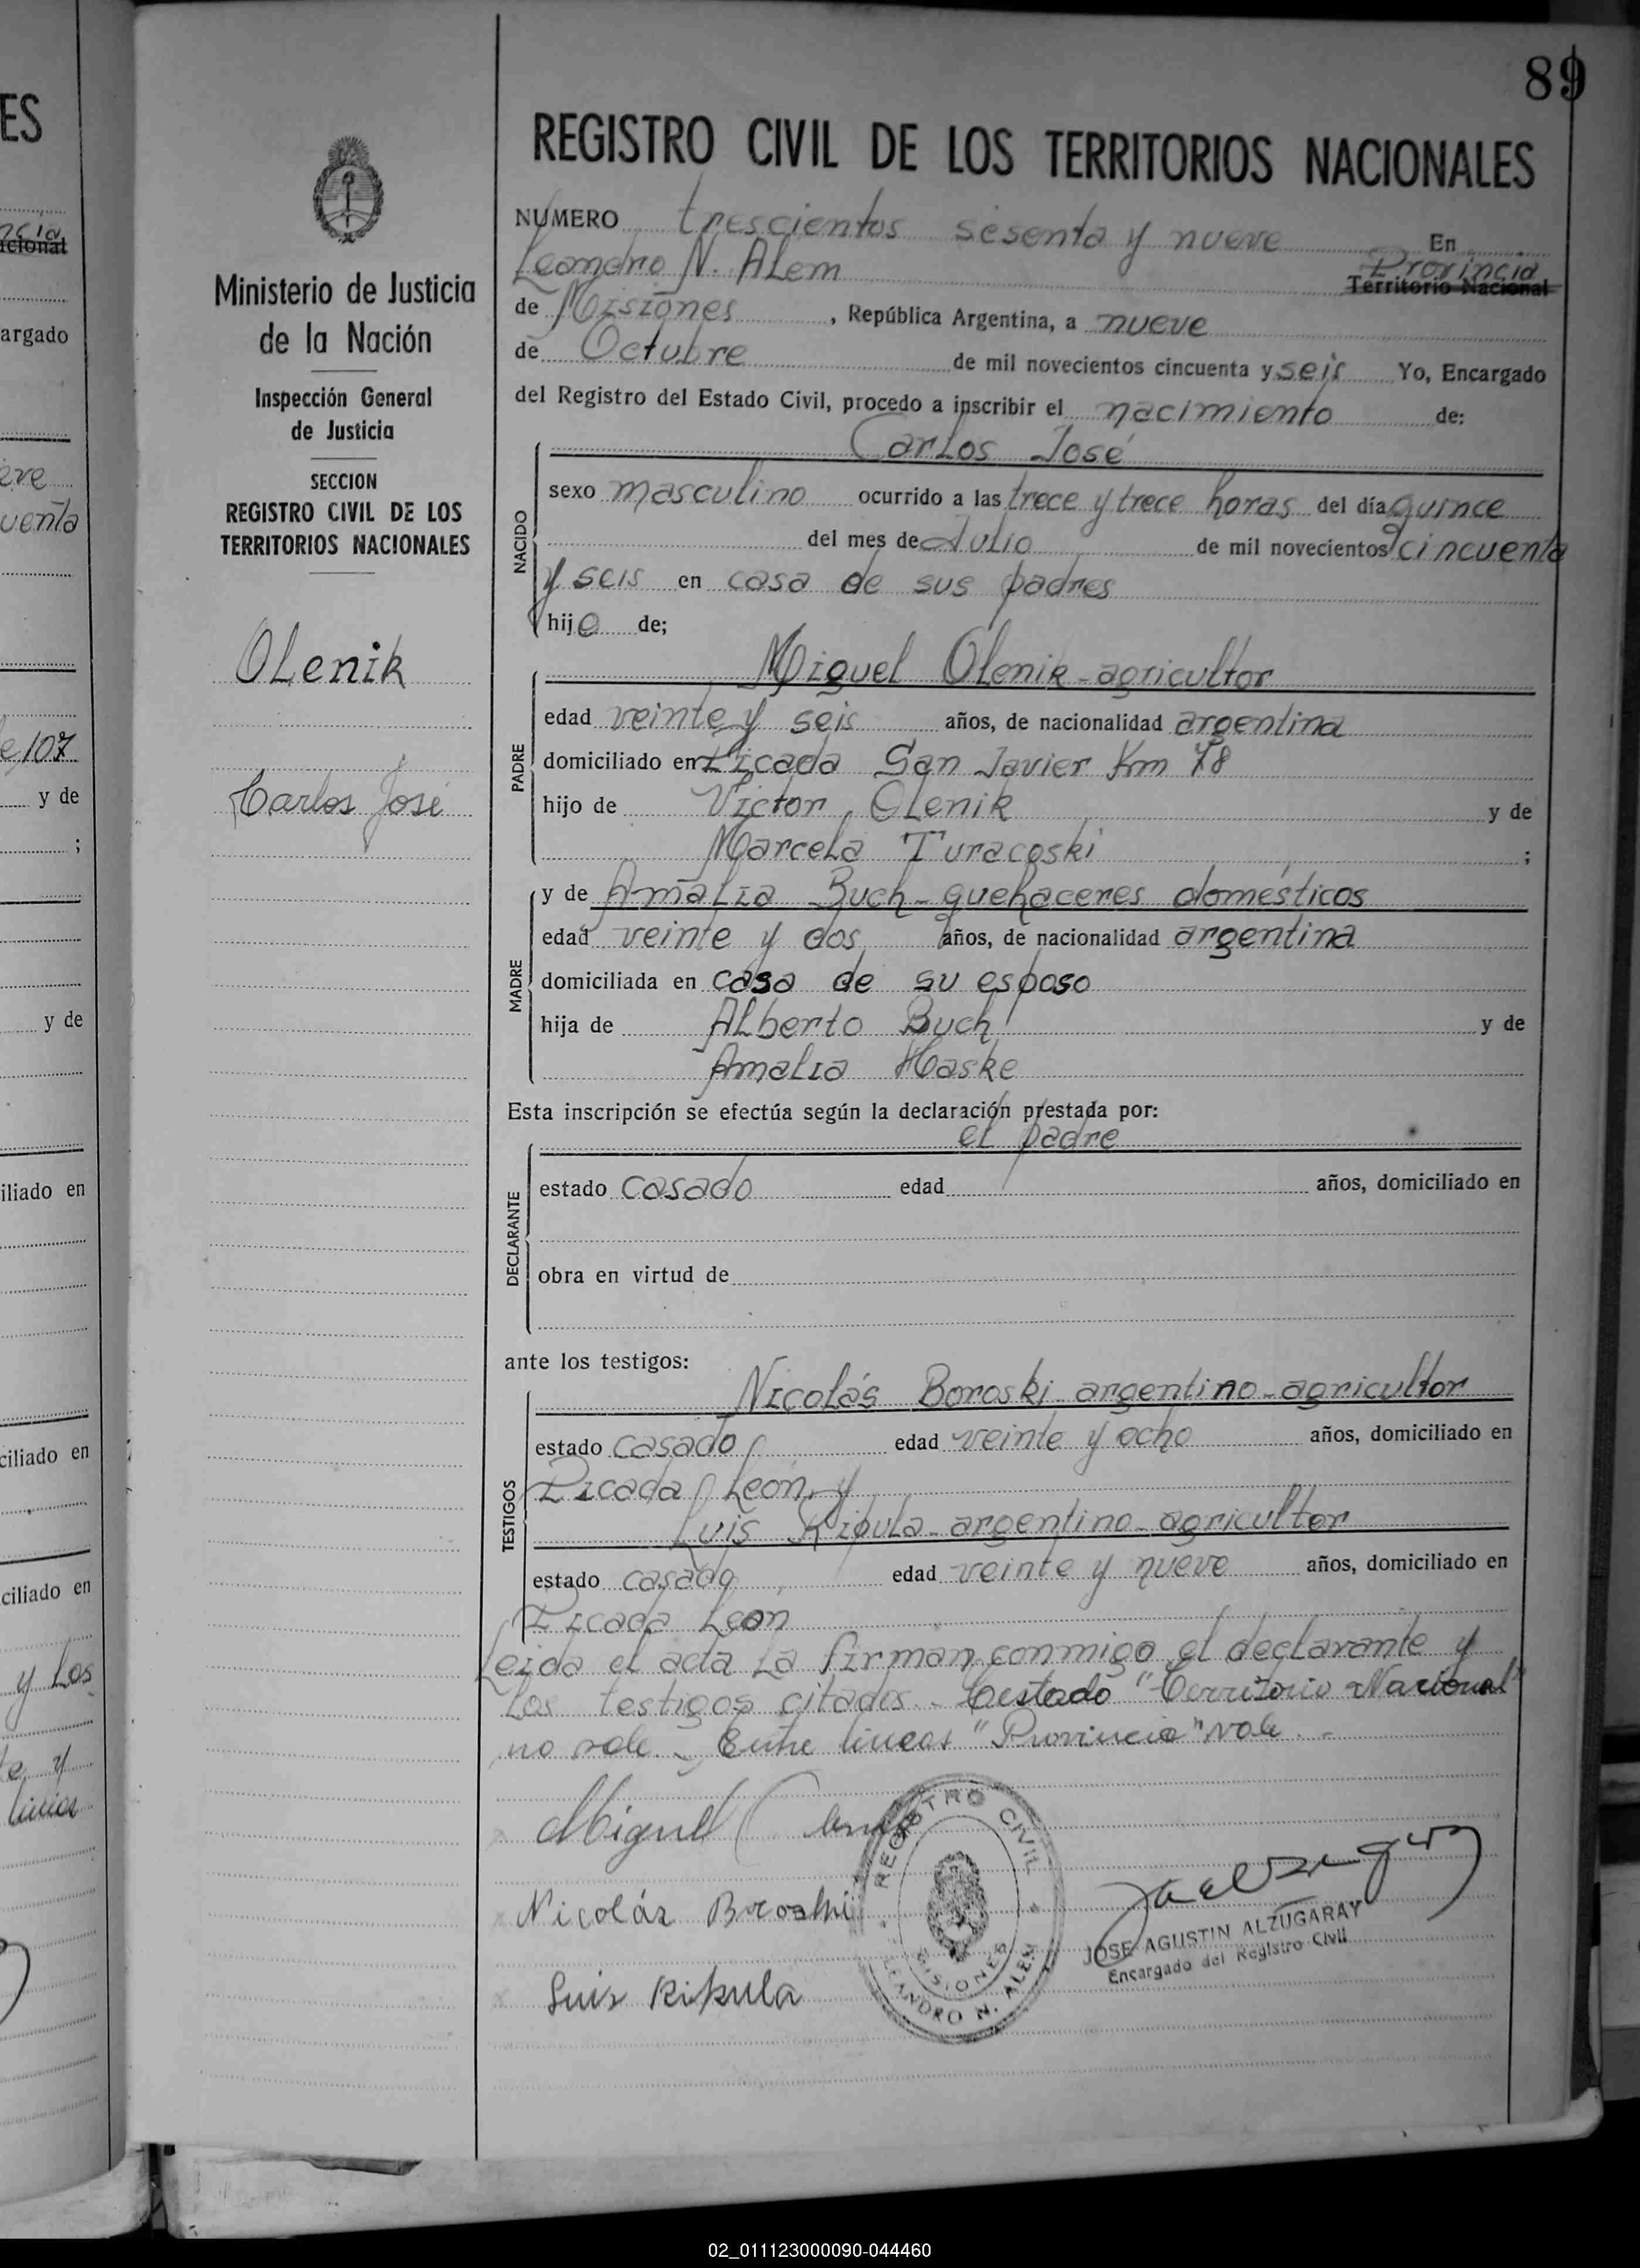 89
ES
REGISTRO CIVIL DE LOS TERRITORIOS NACIONALES
NUMERO trescientos sesenta y nueve En
Leandro N. Alem Provincia
Territorio Nacional
de Misiones, República Argentina, a nueve
de Octubre de mil novecientos cincuenta y seis Yo, Encargado
del Registro del Estado Civil, procedo a inscribir el nacimiento de:
Carlos José
NACIDO
sexo masculino ocurrido a las trece y trece horas del día quince
del mes de Julio de mil novecientos cincuenta
y seis en casa de sus padres
hijo de;
Miguel Olenik - agricultor
PADRE
edad veinte y seis años, de nacionalidad argentina
domiciliado en Picada San Javier Km 78
hijo de Victor Olenik y de
Marcela Turacoski ;
MADRE
y de Amalia Buch - quehaceres domésticos
edad veinte y dos años, de nacionalidad argentina
domiciliada en casa de su esposo
hija de Alberto Buch y de
Amalia Haske
Esta inscripción se efectúa según la declaración prestada por:
el padre
DECLARANTE
estado casado edad años, domiciliado en
obra en virtud de
ante los testigos:
Nicolás Boroski argentino - agricultor
TESTIGOS
estado casado edad veinte y ocho años, domiciliado en
Picada León, y
Luis Kipula - argentino - agricultor
estado casado edad veinte y nueve años, domiciliado en
Picada León
Leida el acta la firman conmigo el declarante y
los testigos citados. - Testado "Territorio Nacional"
no vale. - Entre lineas "Provincia" vale. -
Miguel
Nicolás Boroski
Luis Kipula
REGISTRO CIVIL
MISIONES
LEANDRO N. ALEM
JOSE AGUSTIN ALZUGARAY
Encargado del Registro Civil
Ministerio de Justicia
de la Nación
Inspección General
de Justicia
SECCION
REGISTRO CIVIL DE LOS
TERRITORIOS NACIONALES
Olenik
Carlos José
argado
uenta
107
y de
;
y de
iliado en
ciliado en
ciliado en
y los
02_011123000090-044460